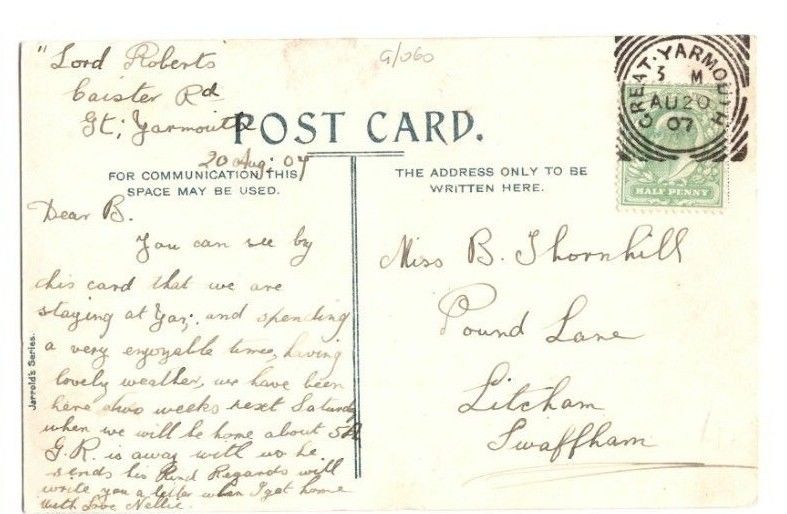 " Lord Roberts
Caister Rd
Gt; Yarmouth
20 Aug: 07
G/060
POST CARD.
FOR COMMUNICATION THIS
SPACE MAY BE USED.
THE ADDRESS ONLY TO BE
WRITTEN HERE.
GREAT·YARMOUTH
3 M
AU 20
07
HALF PENNY
Dear B.
You can see by
this card that we are
staying at Yar; and spending
a very enjoyable time, having
lovely weather, we have been
here two weeks next Saturday
when we will be home about 5
G. R. is away with us he
sends his Kind Regards will
write you a letter when I get home
With Love Nellie.
Miss B. Thornhill
Pound Lane
Litcham
Swaffham
Jarrold's Series.